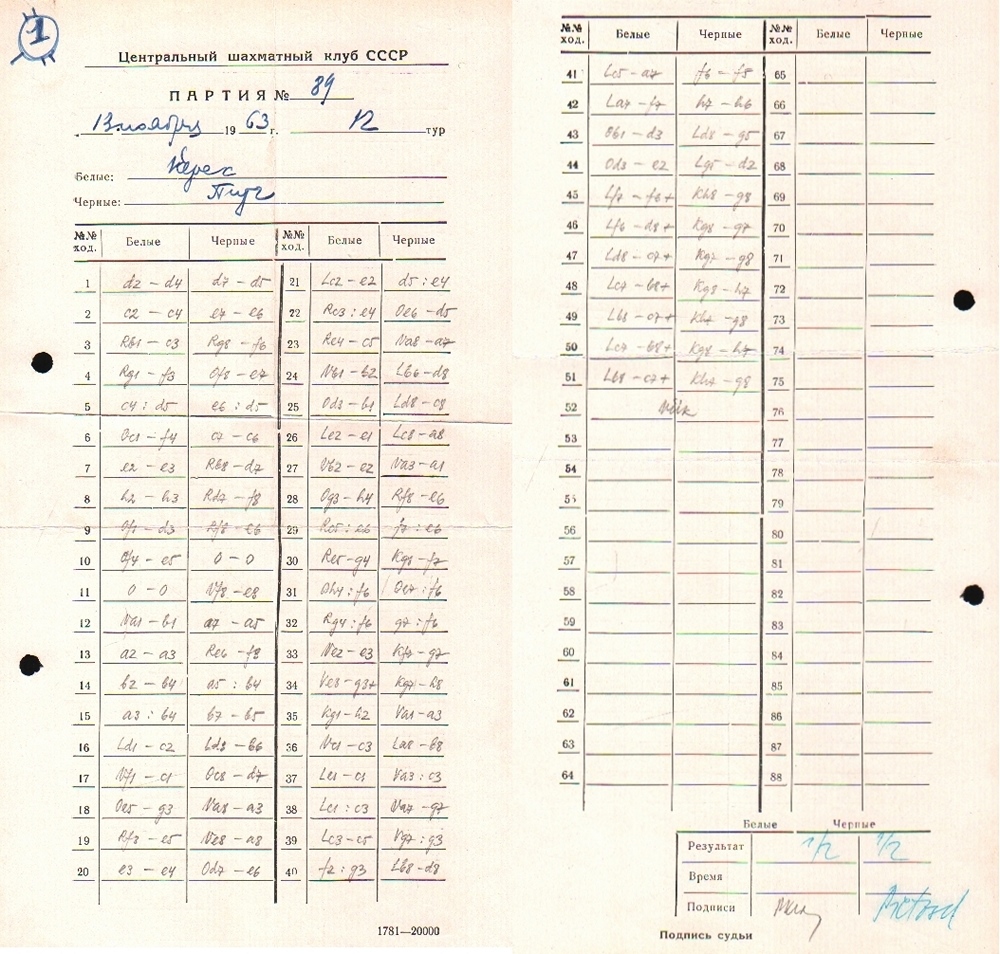 1
Центральный шахматный клуб СССР
ПАРТИЯ № 89
„13 ноября 1963 г. 12 тур
Белые: Керес
Черные: Питч
№№ ход. Белые Черные №№ ход. Белые Черные
1 d2 – d4 d7 – d5 21 Lc2 – e2 d5 : e4
2 c2 – c4 e7 – e6 22 Rc3 : e4 Oe6 – d5
3 Rb1 – c3 Rg8 – f6 23 Re4 – c5 Va8 – a7
4 Rg1 – f3 Of8 – e7 24 Vb1 – b2 Lb6 – d8
5 c4 : d5 e6 : d5 25 Od3 – b1 Ld8 – c8
6 Oc1 – f4 c7 – c6 26 Le2 – e1 Lc8 – a8
7 e2 – e3 Rb8 – d7 27 Vb2 – e2 Va3 – a1
8 h2 – h3 Rd7 – f8 28 Og3 – h4 Rf8 – e6
9 Of1 – d3 Rf8 – e6 29 Rc5 : e6 f7 : e6
10 Of4 – e5 0 – 0 30 Re5 – g4 Kg8 – f7
11 0 – 0 Vf8 – e8 31 Oh4 : f6 Oe7 : f6
12 Va1 – b1 a7 – a5 32 Rg4 : f6 g7 : f6
13 a2 – a3 Re6 – f8 33 Ve2 – e3 Kf7 – g7
14 b2 – b4 a5 : b4 34 Ve3 – g3+ Kg7 – h8
15 a3 : b4 b7 – b5 35 Kg1 – h2 Va1 – a3
16 Ld1 – c2 Ld8 – b6 36 Vc1 – c3 La8 – b8
17 Vf1 – c1 Oc8 – d7 37 Le1 – c1 Va3 : c3
18 Oe5 – g3 Va8 – a3 38 Lc1 : c3 Va7 – g7
19 Rf3 – e5 Ve8 – a8 39 Lc3 – c5 Vg7 : g3
20 e3 – e4 Od7 – e6 40 f2 : g3 Lb8 – d8
1781—20000
№№ ход. Белые Черные №№ ход. Белые Черные
41 Lc5 – a7 f6 – f5 65
42 La7 – f7 h7 – h6 66
43 Ob1 – d3 Ld8 – g5 67
44 Od3 – e2 Lg5 – d2 68
45 Lf7 – f6+ Kh8 – g8 69
46 Lf6 – d8+ Kg8 – g7 70
47 Ld8 – c7+ Kg7 – g8 71
48 Lc7 – b8+ Kg8 – h7 72
49 Lb8 – c7+ Kh7 – g8 73
50 Lc7 – b8+ Kg8 – h7 74
51 Lb8 – c7+ Kh7 – g8 75
52 Viik 76
53 77
54 78
55 79
56 80
57 81
58 82
59 83
60 84
61 85
62 86
63 87
64 88
Белые Черные
Результат 1/2 1/2
Время
Подписи
Подпись судьи